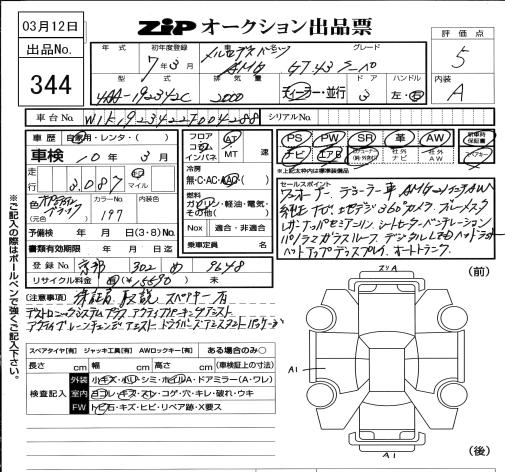 03月12日
出品No.
344
ZIP オークション出品票
評価点
5
内装
A
年式 初年度登録 車名 グレード
7年3月 メルセデスベンツ AMG GT43 クーペ
型式 排気量 ドア ハンドル
4AA-192342C 2000 ディーラー・並行 3 左・右
車台No. W1K1923422T004288 シリアルNo.
車歴 自家用・レンタ・( )
車検 10年3月
走行 3,087 km マイル
色 オブシディアンブラック (元色) カラーNo. 197 内装色
予備検 年 月 日(3・8)No.
書類有効期限 年 月 日
登録No. 京都 302 め 9648
リサイクル料金 有(¥15590) 無
フロア コラム インパネ AT MT 速
冷房 無・C・AC・AAC
燃料 ガソリン・軽油・電気・その他( )
Nox 適合・非適合
乗車定員 名
PS PW SR 革 AW
ナビ エアB 社外ナビ 社外AW
新車時保証書
*上記太枠内は標準装備品
セールスポイント
ワンオーナー ディーラー車 AMG21インチAW
純正ナビ 地デジ 360°カメラ ブルーメスター
レザーナッパセミアニリン シートヒーター ベンチレーション
パノラミックガラスルーフ デジタルLEDヘッドライト
ヘッドアップディスプレイ オートトランク
(注意事項) 保証書 取説 スペアキー有
ディストロニックシステムプラス アクティブパーキングアシスト
アクティブレーンチェンジアシスト ドライバーズアシスタントパッケージ
スペアタイヤ[有] ジャッキ工具[有] AWロックキー[有] ある場合のみ○
長さ cm 幅 cm 高さ cm (車検証上の寸法)
検査記入
外装 小キズ・小凹・シミ・ホイルA・ドアミラー(A・ワレ)
室内 ヨゴレ・キズ・スレ・コゲ・穴・キレ・破れ・ウキ
FW トビ石・キズ・ヒビ・リペア跡・X要ス
ご記入の際はボールペンで強くご記入下さい。
(前)
スリA
A1
A1
(後)